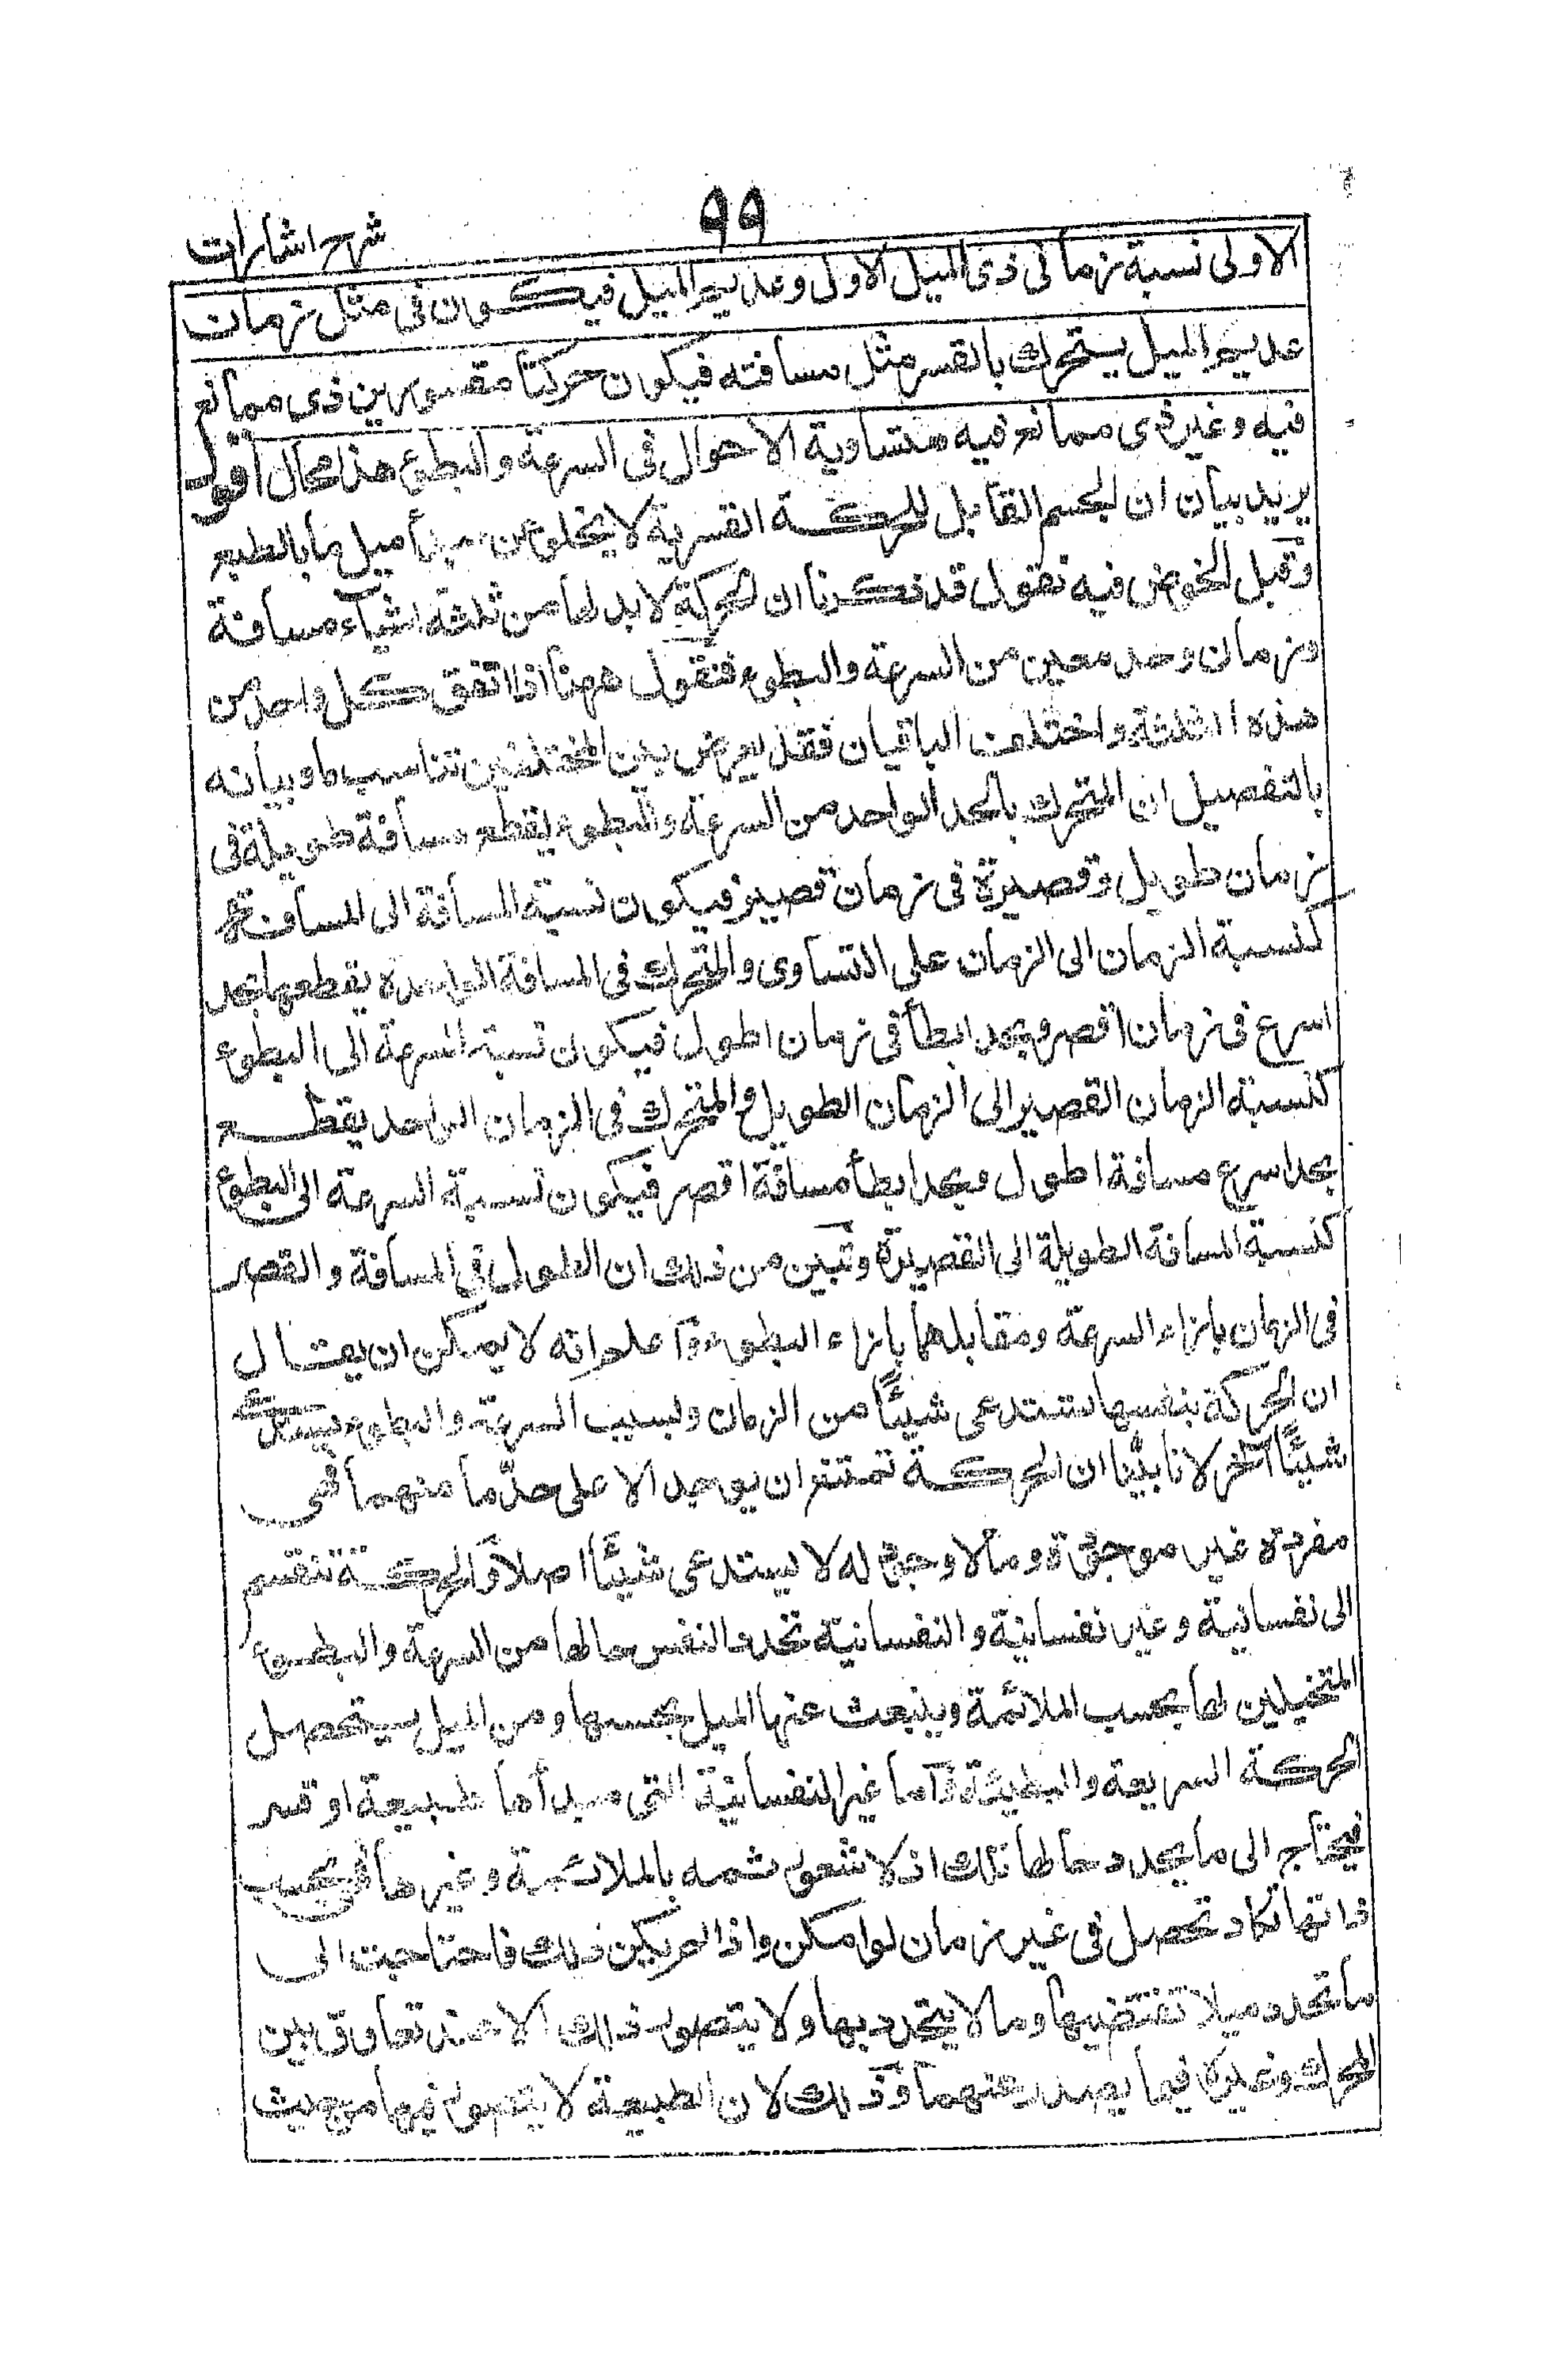 ٩٩
شرح اشارات
الاولى نسبة زمانى ذى الميل الاول وعديم الميل فيكون فى مثل زمان
عديم الميل يتحرك بالقسر مثل مسافته فيكون حركتا مقسورين ذى ممانع
فيه وغير ذى ممانع فيه متساوية الاحوال فى السرعة والبطوء هذا محال اقول
يريد بيان ان الجسم القابل للحركة القسرية لا يخلو عن مبدأ ميل ما بالطبع
وقبل الخوض فيه نقول قد ذكرنا ان الحركة لا بد لها من ثلثة اشياء مسافة
وزمان وحد معين من السرعة والبطوء فنقول ههنا اذا اتفق كل واحد من
هذه الثلثة واختلف الباقيان فقد يعرض بين المختلفين تناسب ما وبيانه
بالتفصيل ان المتحرك بالحد الواحد من السرعة والبطوء يقطع مسافة طويلة فى
زمان طويل وقصيرة فى زمان قصير فيكون نسبة المسافة الى المسافة
كنسبة الزمان الى الزمان على التساوى والمتحرك فى المسافة الواحدة يقطعها بحد
اسرع فى زمان اقصر وبحد ابطأ فى زمان اطول فيكون نسبة السرعة الى البطوء
كنسبة الزمان القصير الى الزمان الطويل والمتحرك فى الزمان الواحد يقطع
بحد اسرع مسافة اطول وبحد ابطأ مسافة اقصر فيكون نسبة السرعة الى البطوء
كنسبة المسافة الطويلة الى القصيرة وتبين من ذلك ان الطول فى المسافة والقصر
فى الزمان بازاء السرعة ومقابلهما بازاء البطوء واعلم انه لا يمكن ان يقال
ان الحركة بنفسها تستدعى شيئًا من الزمان وبسبب السرعة والبطوء يستدعى
شيئًا آخر لانا بيّنا ان الحركة تمتنع ان يوجد الا على حدّ ما منهما فهى
مفردة غير موجودة وما لا وجود له لا يستدعى شيئًا اصلا والحركة تنقسم
الى نفسانية وغير نفسانية والنفسانية تحدد النفس حالها من السرعة والبطوء
المتخيلين لها بحسب الملائمة وينبعث عنها الميل بحسبها ومن الميل يتحصل
الحركة السريعة والبطيئة واما غير النفسانية التى مبدأها طبيعة او قسر
فيحتاج الى ما يحدد حالها تلك اذ لا شعور ثمه بالملائمة وغيرها فهى بحسب
ذاتها تكاد تحصل فى غير زمان لو امكن واذا لم يمكن ذلك فاحتاجت الى
ما تحدد ميلا تقتضيها وما لا يتحدد بها ولا يتصور ذلك الا عند تعاوق بين
المحرك وغيره فيما يصدر عنهما وذلك لان الطبيعة لا يتصور فيها من حيث